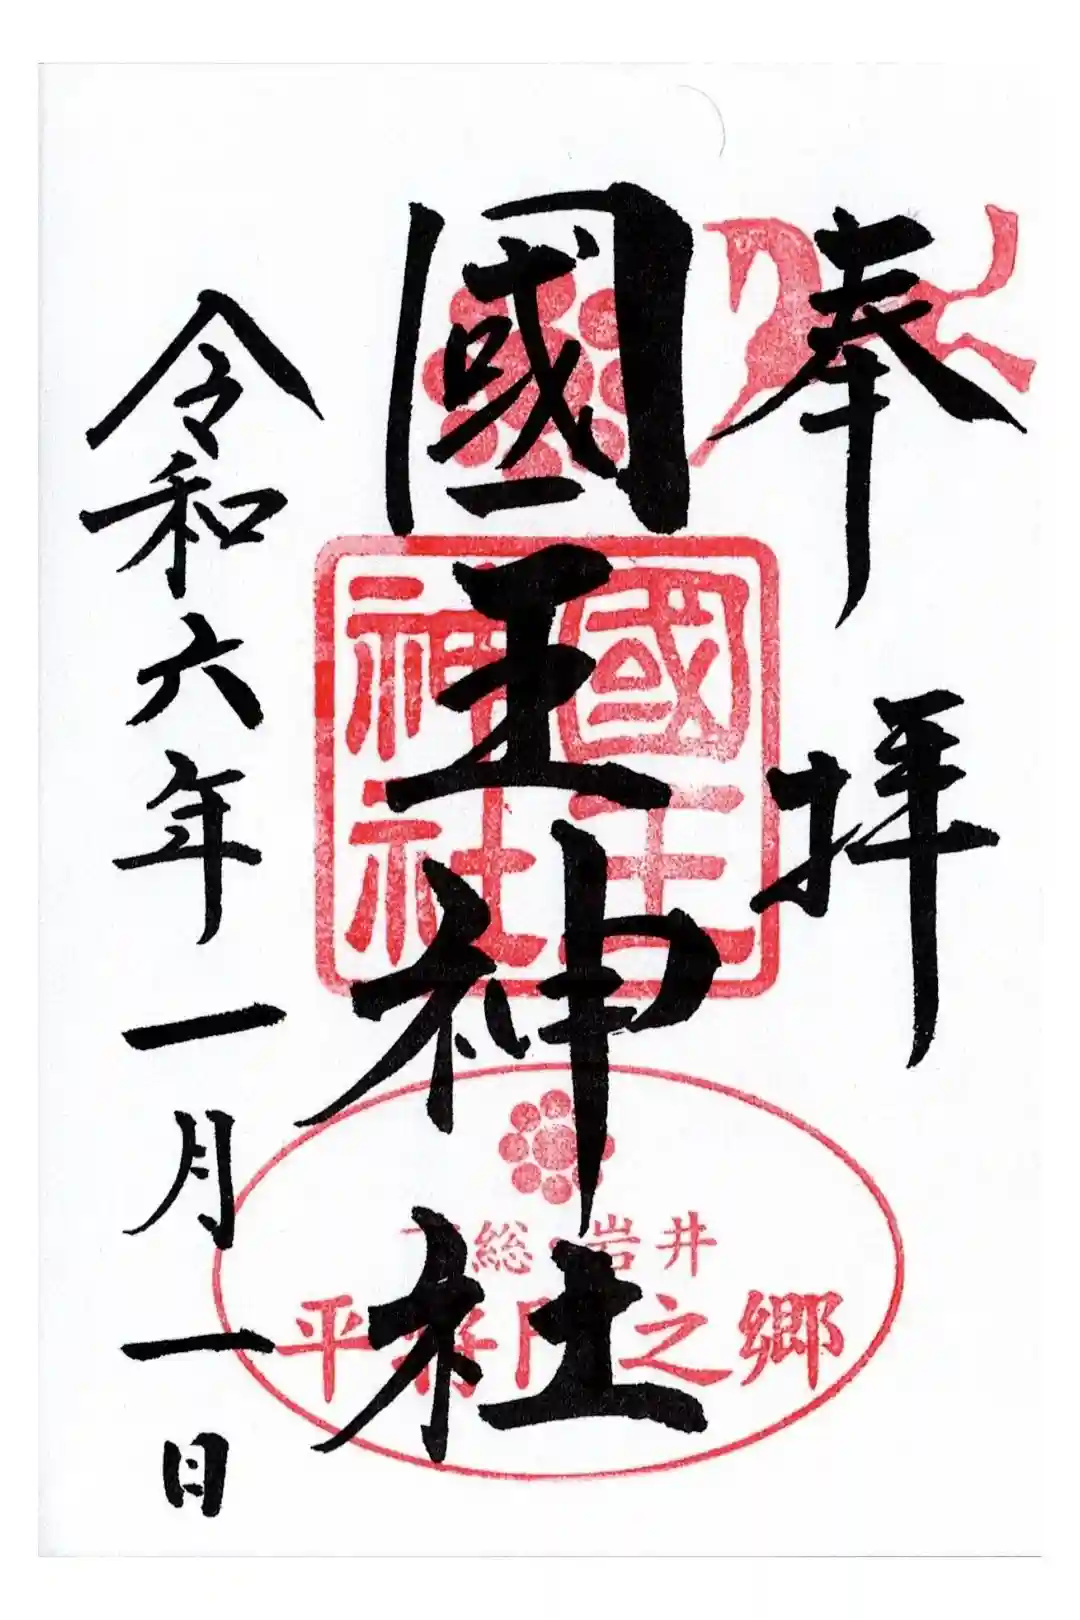 奉拝
國王神社
令和六年一月一日
國王
神社
総・岩井
平将門之郷